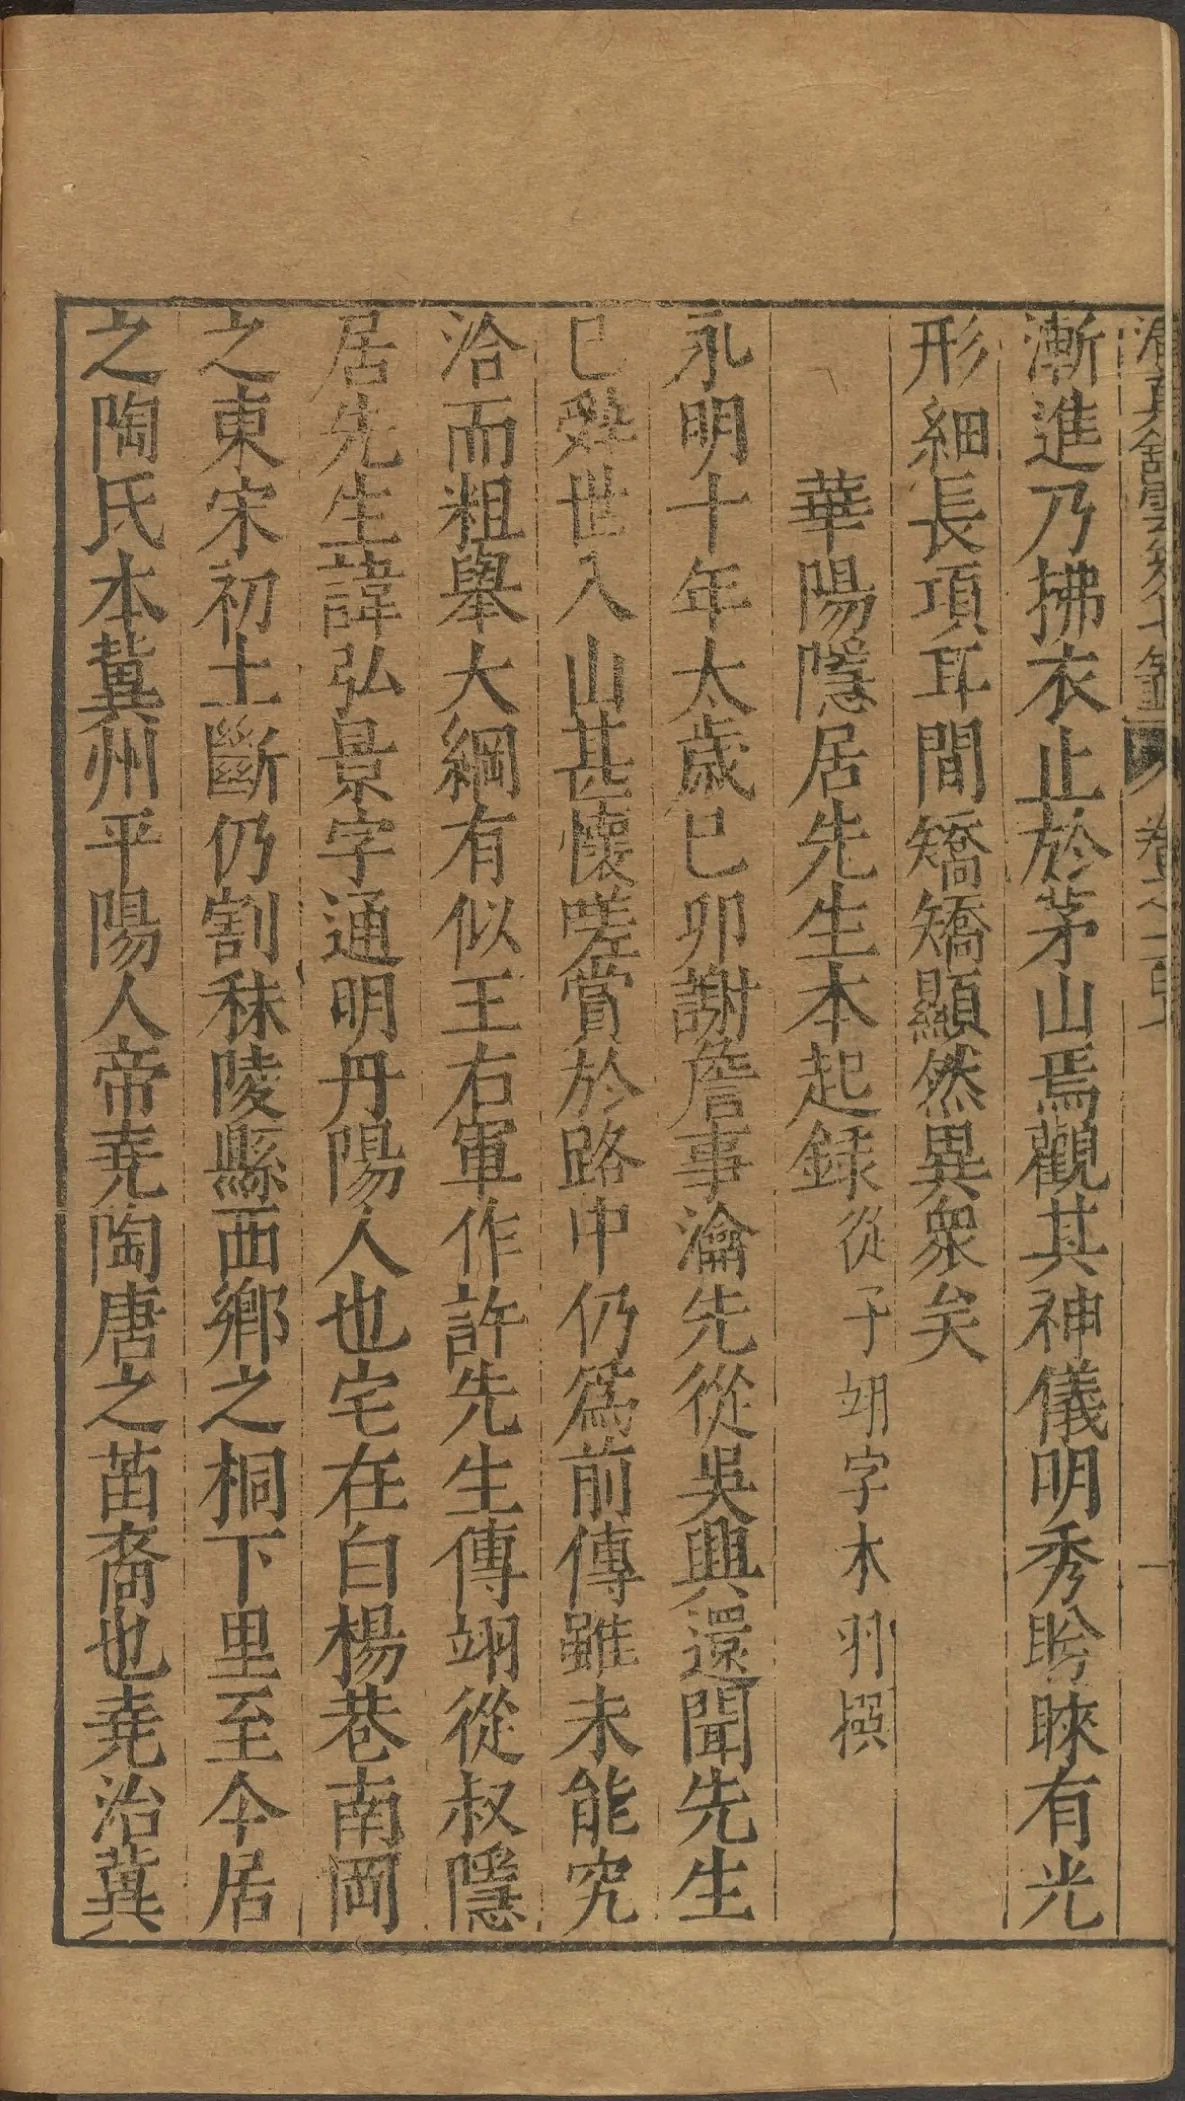 漸進乃拂衣止於茅山焉觀其神儀明秀眄睐有光
形細長項耳間矯矯顯然異衆矣
華陽隱居先生本起録從子翊字木羽撰
永明十年太歲已卯謝詹事瀹先從吳興還聞先生
已辤世入山甚懷嗟賞於路中仍爲前傳雖未能究
洽而粗舉大綱有似王右軍作許先生傳翊從叔隱
居先生諱弘景字通明丹陽人也宅在白楊巷南岡
之東宋初土斷仍割秣陵縣西鄉之桐下里至今居
之陶氏本冀州平陽人帝堯陶唐之苗裔也堯治冀